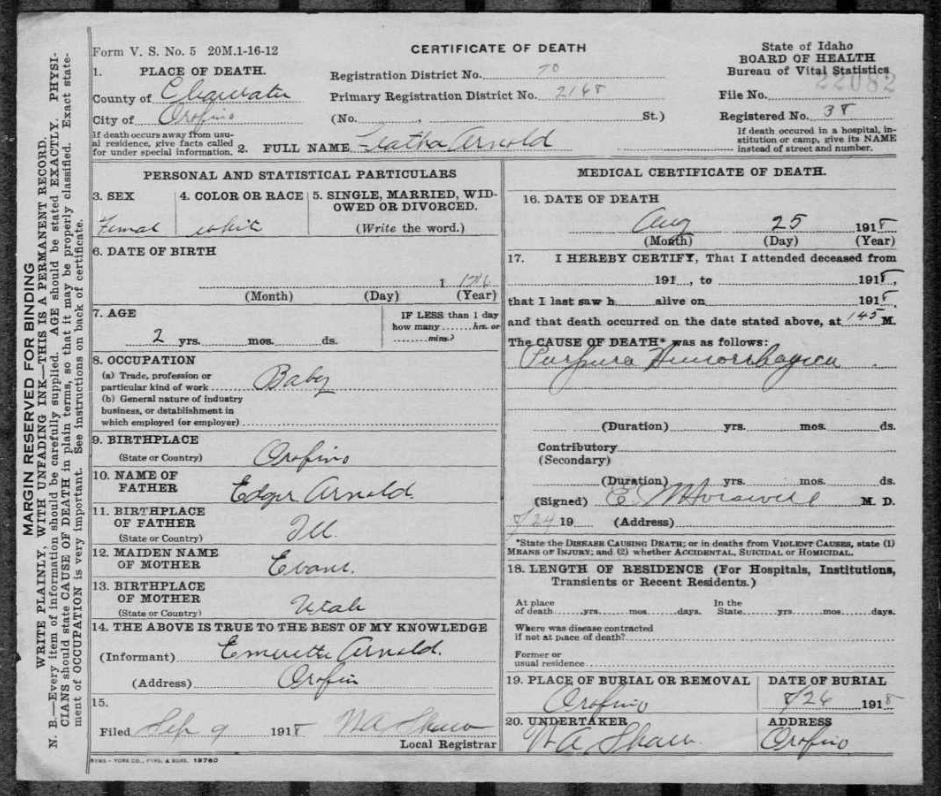 MARGIN RESERVED FOR BINDING
WRITE PLAINLY, WITH UNFADING INK—THIS IS A PERMANENT RECORD.
N. B.—Every item of information should be carefully supplied. AGE should be stated EXACTLY. PHYSI-
CIANS should state CAUSE OF DEATH in plain terms, so that it may be properly classified. Exact state-
ment of OCCUPATION is very important. See instructions on back of certificate.
Form V. S. No. 5 20M.1-16-12
CERTIFICATE OF DEATH
State of Idaho
BOARD OF HEALTH
Bureau of Vital Statistics
22082
1. PLACE OF DEATH.
County of Clearwater
City of Orofino
If death occurs away from usu-
al residence, give facts called
for under special information.
Registration District No. 70
Primary Registration District No. 2168
(No. , St.)
File No.
Registered No. 38
If death occured in a hospital, in-
stitution or camp, give its NAME
instead of street and number.
2. FULL NAME Arnold
PERSONAL AND STATISTICAL PARTICULARS
3. SEX
Femal
4. COLOR OR RACE
white
5. SINGLE, MARRIED, WID-
OWED OR DIVORCED.
(Write the word.)
6. DATE OF BIRTH
1
(Month) (Day) (Year)
7. AGE
2 yrs. mos. ds.
IF LESS than 1 day
how many ...... hrs. or
...... mins.?
8. OCCUPATION
(a) Trade, profession or
particular kind of work Baby
(b) General nature of industry
business, or destablishment in
which employed (or employer)
9. BIRTHPLACE
(State or Country) Orofino
10. NAME OF
FATHER Edger Arnold
11. BIRTHPLACE
OF FATHER Ill.
(State or Country)
12. MAIDEN NAME
OF MOTHER Evans.
13. BIRTHPLACE
OF MOTHER Utah
(State or Country)
14. THE ABOVE IS TRUE TO THE BEST OF MY KNOWLEDGE
(Informant) Arnold.
(Address) Orofin
15.
Filed Sep 9 1918 W A Shaw
Local Registrar
SYMS - YORK CO., PTRS. & BDRS. 19760
MEDICAL CERTIFICATE OF DEATH.
16. DATE OF DEATH
Aug 25 1918
(Month) (Day) (Year)
17. I HEREBY CERTIFY, That I attended deceased from
191 , to 1918,
that I last saw h alive on 1918,
and that death occurred on the date stated above, at 145 M.
The CAUSE OF DEATH* was as follows:
Purpura Hemorrhagica
(Duration) yrs. mos. ds.
Contributory
(Secondary)
(Duration) yrs. mos. ds.
(Signed) E. M. Horswill M. D.
8/24 19 (Address)
*State the DISEASE CAUSING DEATH; or in deaths from VIOLENT CAUSES, state (1)
MEANS OF INJURY; and (2) whether ACCIDENTAL, SUICIDAL or HOMICIDAL.
18. LENGTH OF RESIDENCE (For Hospitals, Institutions,
Transients or Recent Residents.)
At place
of death yrs. mos days.
In the
State yrs. mos. days.
Where was disease contracted
if not at place of death?
Former or
usual residence
19. PLACE OF BURIAL OR REMOVAL
Orofino
DATE OF BURIAL
8/26 1918
20. UNDERTAKER
W A Shaw.
ADDRESS
Orofino